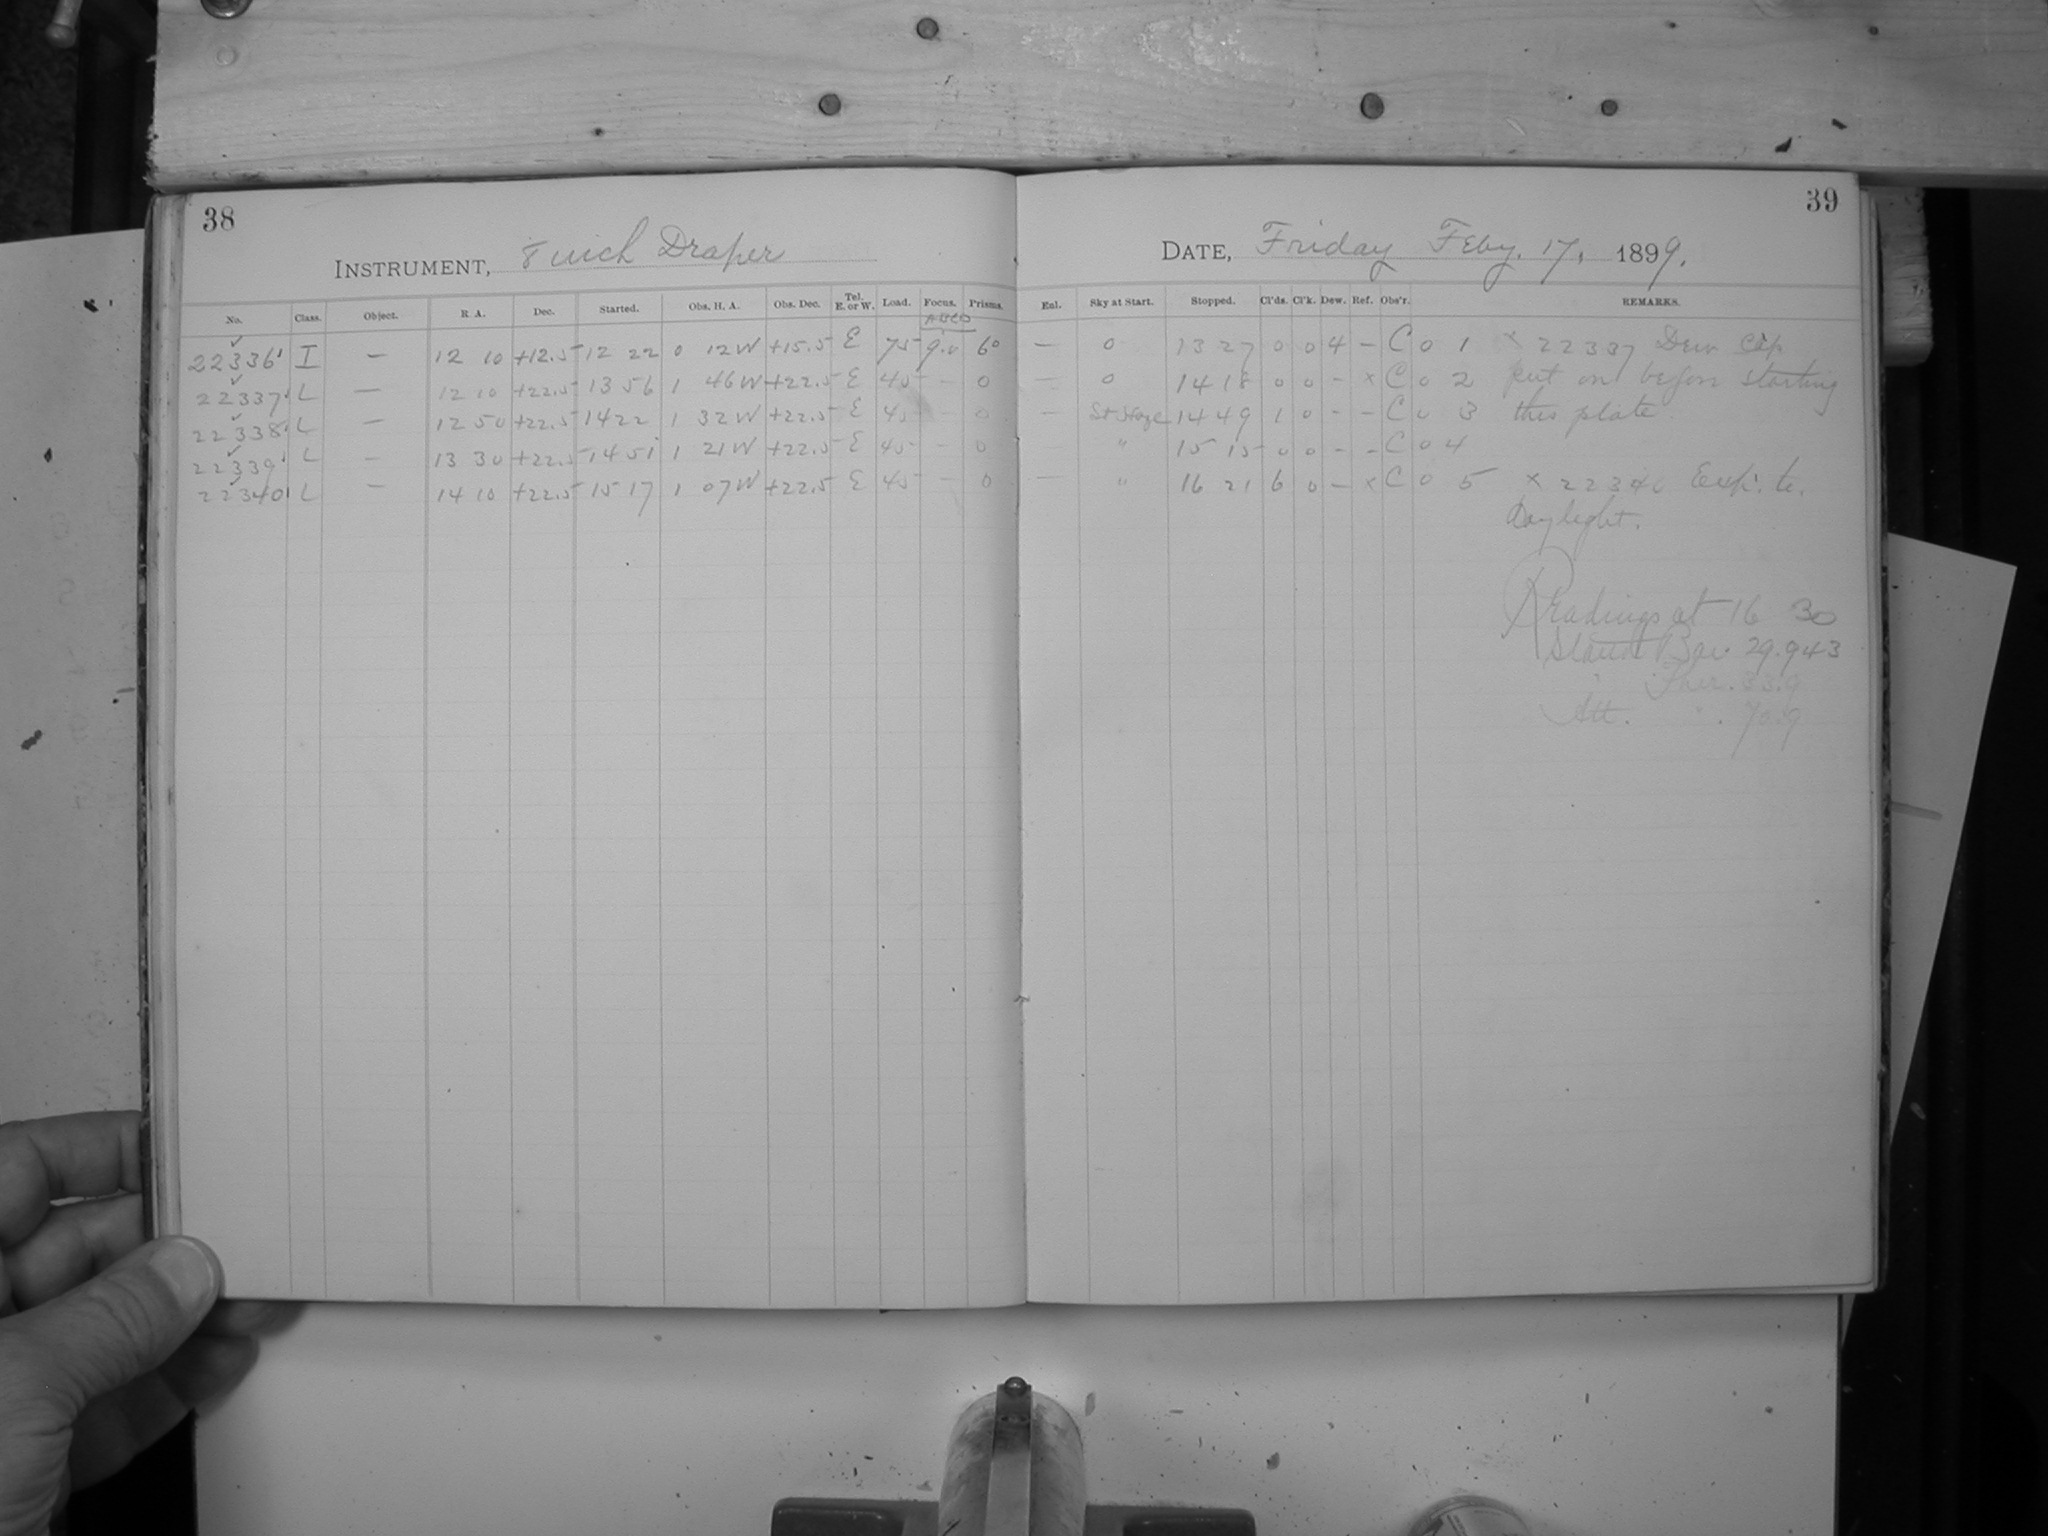 38
INSTRUMENT, 8 inch Draper
No. Class. Object. R A. Dec. Started. Obs. H. A. Obs. Dec. Tel. E. or W. Load. Focus. Prisms.
22336 I — 12 10 +12.5 12 22 0 12W +15.5 E 75 9.0 60
22337 L — 12 10 +22.5 13 56 1 46W +22.5 E 45 — 0
22338 L — 12 50 +22.5 14 22 1 32W +22.5 E 45 — 0
22339 L — 13 30 +22.5 14 51 1 21W +22.5 E 45 — 0
22340 L — 14 10 +22.5 15 17 1 07W +22.5 E 45 — 0
39
DATE, Friday Feby. 17, 1899.
Enl. Sky at Start. Stopped. Cl'ds. Cl'k. Dew. Ref. Obs'r. REMARKS.
— 0 13 27 0 0 4 – C 0 1 × 22337 Dew Cap
— 0 14 18 0 0 – × C 0 2 put on before starting
— St Haze 14 49 1 0 – – C 0 3 this plate
" 15 15 0 0 – – C 0 4
— " 16 21 6 0 – × C 0 5 × 22340 Exp. to.
Daylight.
Readings at 16 30
Bar. 29.943
Ther. 33.9
Att. " . 70.9